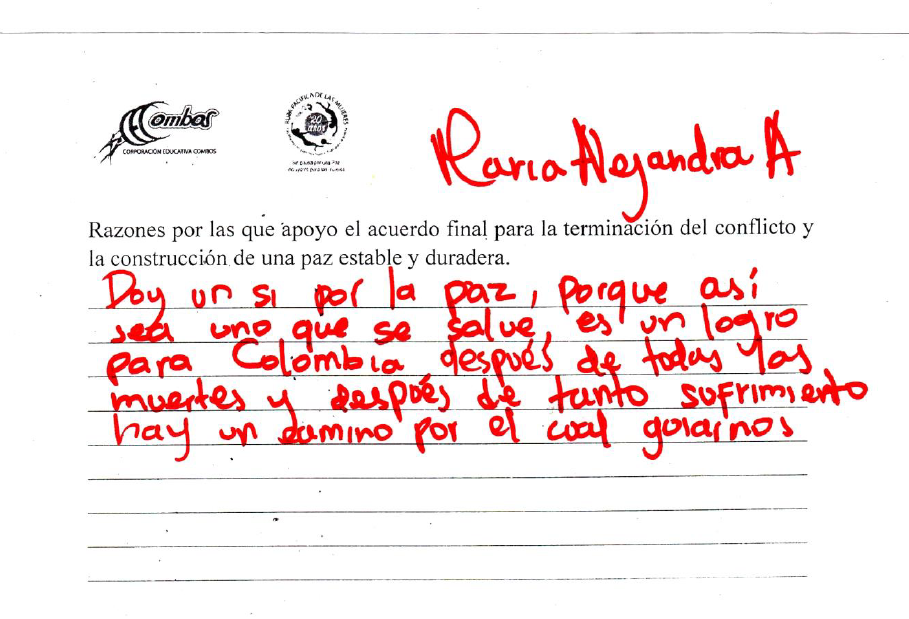 Combos
CORPORACIÓN EDUCATIVA COMBOS
RUTA PACIFICA DE LAS MUJERES
20
años
Maria Alejandra A
Razones por las que apoyo el acuerdo final para la terminación del conflicto y
la construcción de una paz estable y duradera.
Doy un si por la paz, porque así
sea uno que se salve, es un logro
para Colombia después de todas las
muertes y después de tanto sufrimiento
hay un camino por el cual guiarnos